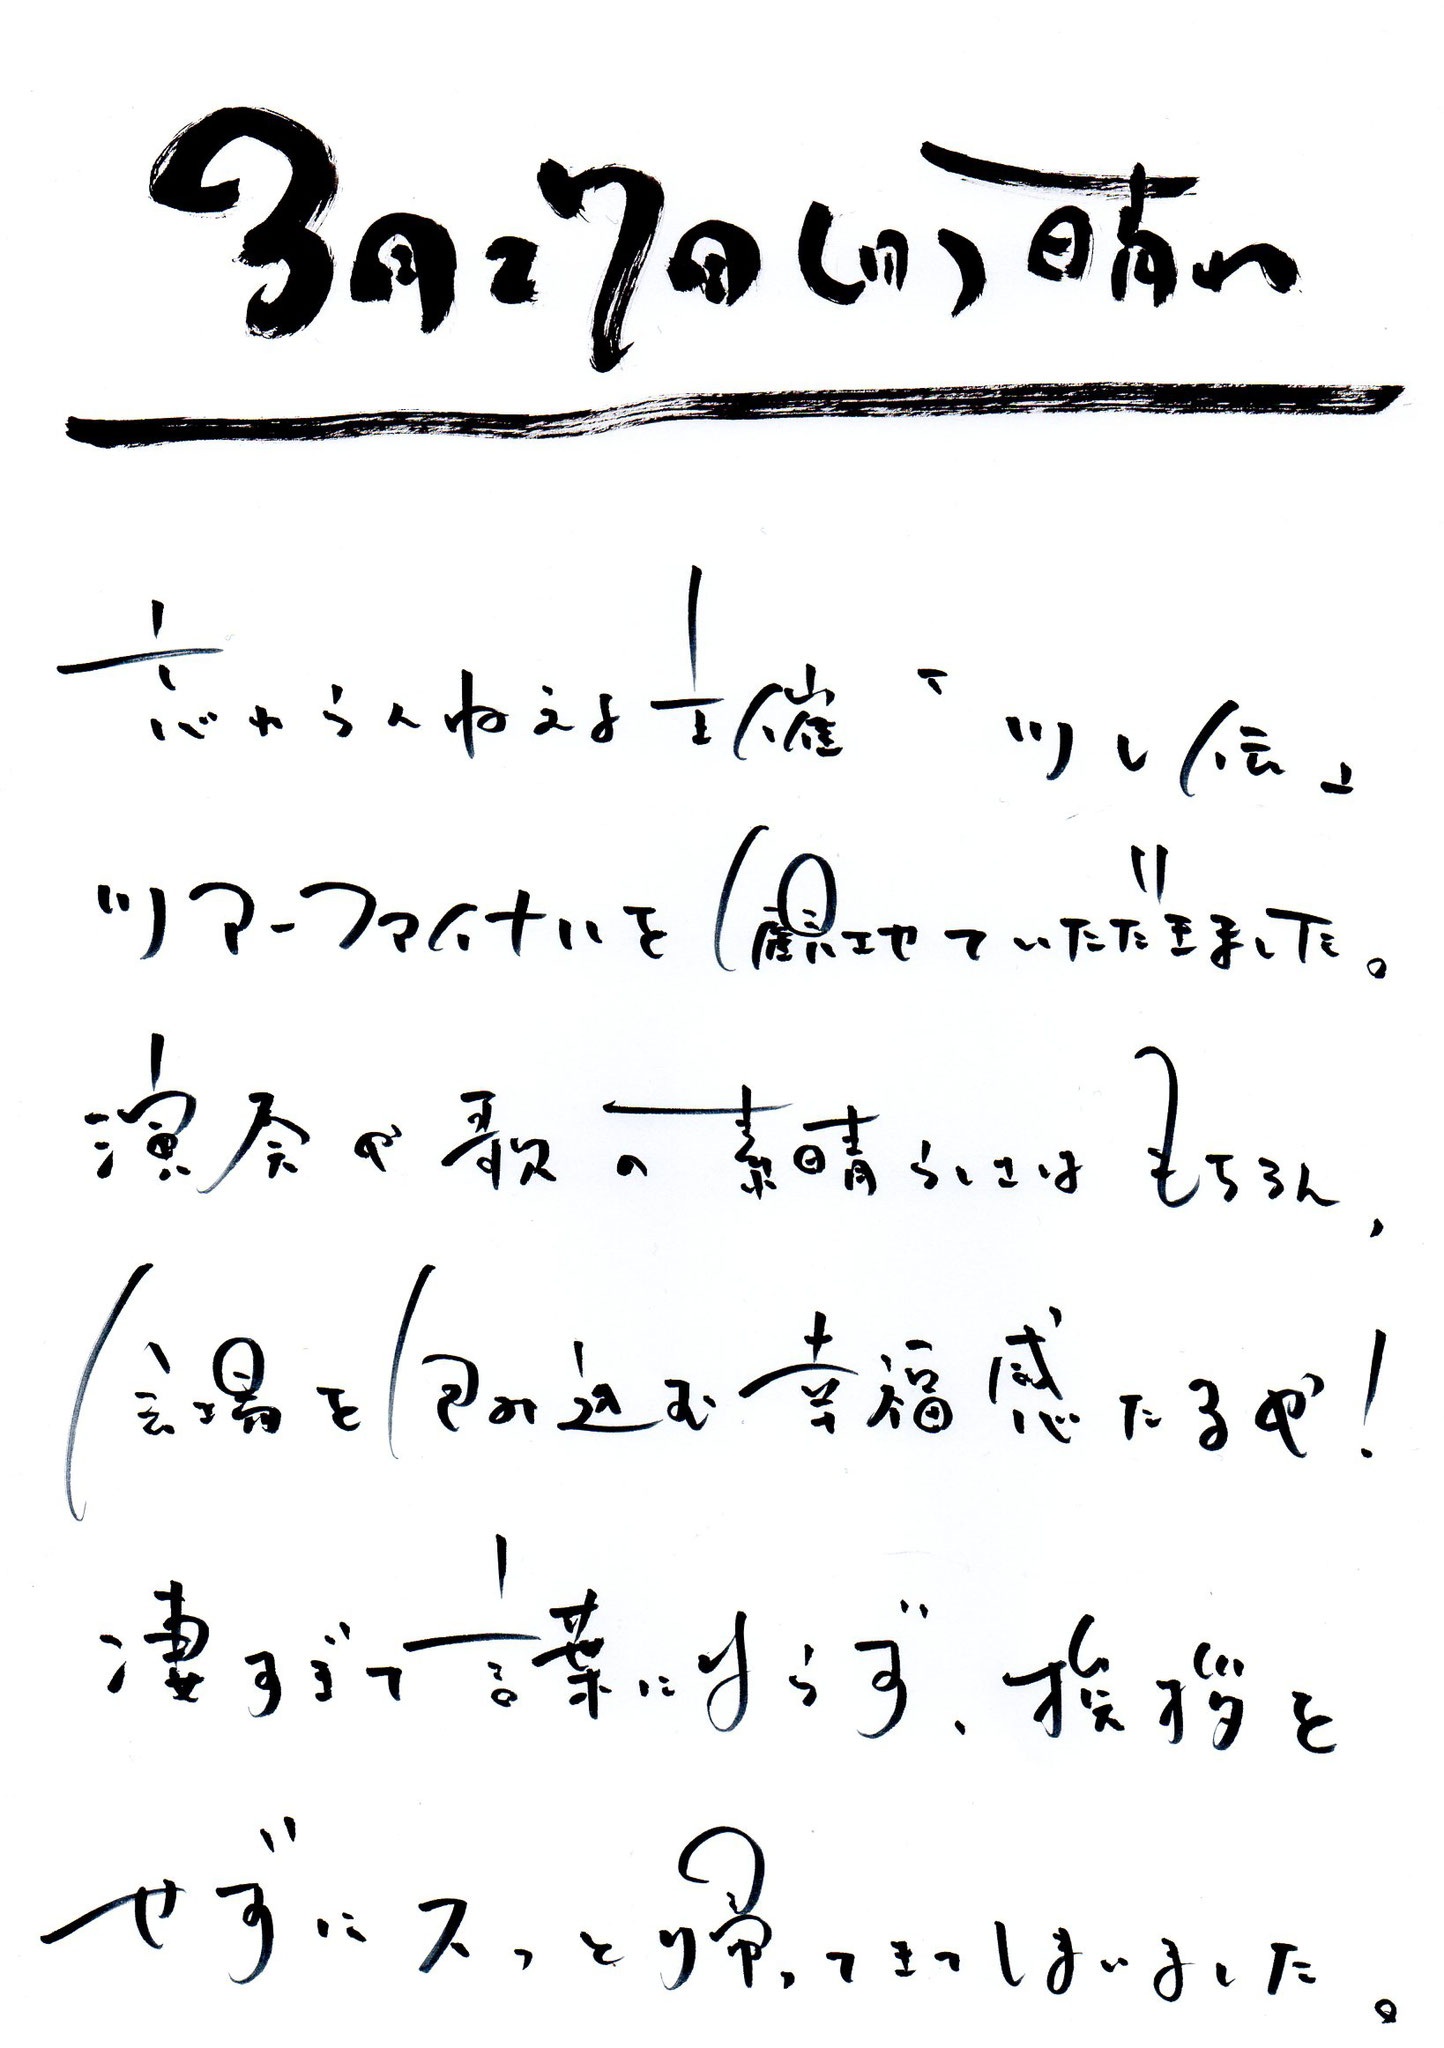 3月27日(月)晴れ
忘れらんねえよ主催「ツレ伝」
ツアーファイナルを観させていただきました。
演奏や歌の素晴らしさはもちろん、
会場を包み込む幸福感たるや!
凄すぎて言葉にならず、挨拶を
せずにスッと帰ってきてしまいました。